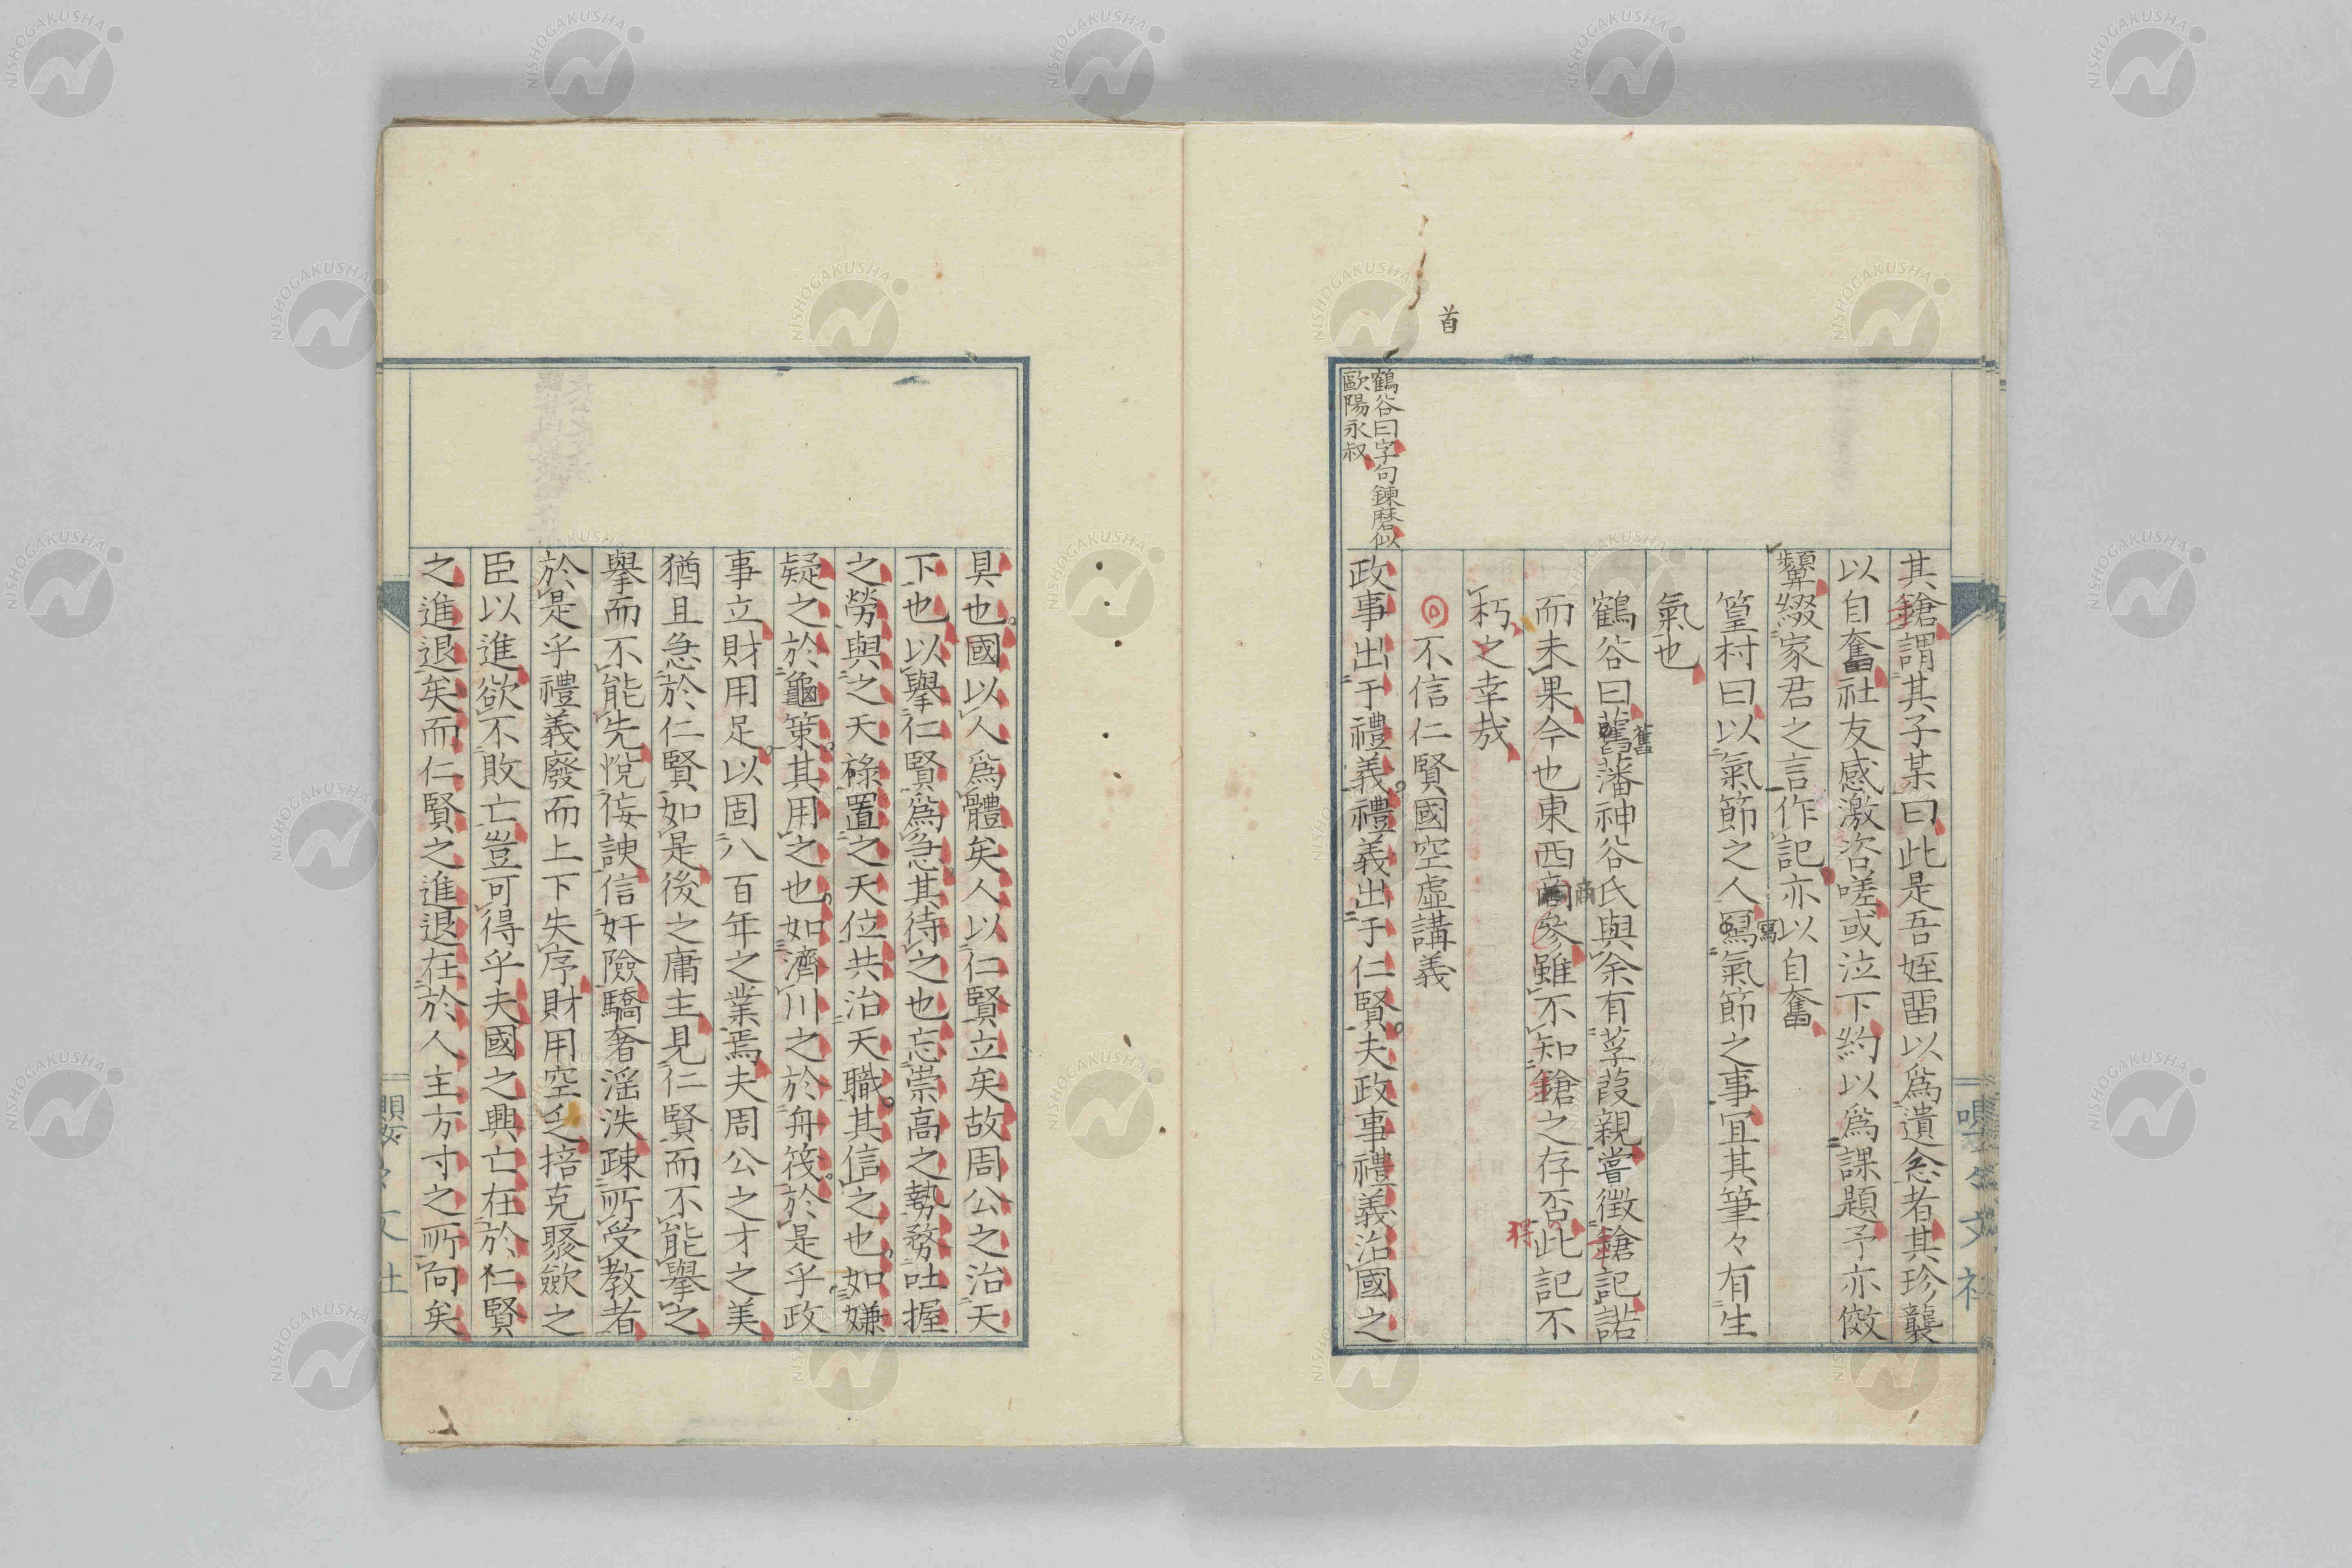 首
其鎗謂其子某曰此是吾姪畱以爲遺念者其珍襲
以自奮社友感激咨嗟或泣下約以爲課題予亦傚
顰綴家君之言作記亦以自奮
篁村曰以氣節之人寫氣節之事宜其筆々有生
寫
氣也
鶴谷曰舊藩神谷氏與余有莩葭親嘗徵鎗記諾
舊
而未果今也東西商參雖不知鎗之存否此記不
商
得
朽之幸哉
不信仁賢國空虛講義
鶴谷曰字句鍊磨似
歐陽永叔
政事出于禮義禮義出于仁賢夫政事禮義治國之
具也國以人爲體矣人以仁賢立矣故周公之治天
下也以擧仁賢爲急其待之也忘崇高之勢務吐握
之勞與之天祿置之天位共治天職其信之也如嫌
疑之於龜策其用之也如濟川之於舟筏於是乎政
事立財用足以固八百年之業焉夫周公之才之美
猶且急於仁賢如是後之庸主見仁賢而不能擧之
擧而不能先悅侫諛信奸險驕奢淫泆疎所受教者
於是乎禮義廢而上下失序財用空乏掊克聚斂之
臣以進欲不敗亡豈可得乎夫國之興亡在於仁賢
之進退矣而仁賢之進退在於人主方寸之所向矣
NISHOGAKUSHA